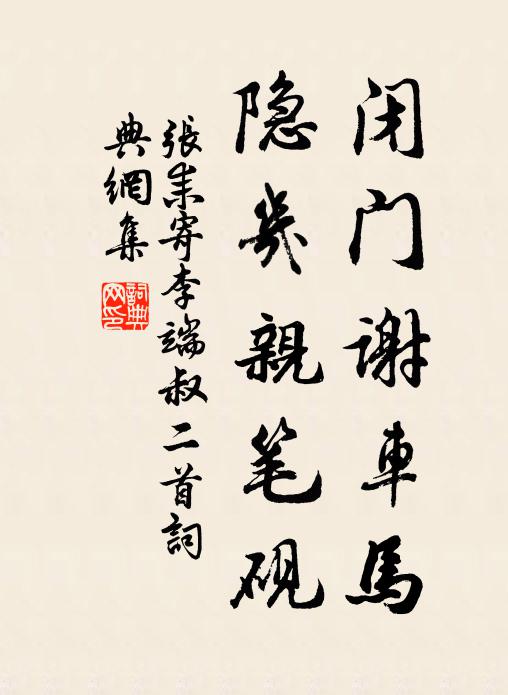 闭门谢車馬
隐幾親笔砚
張耒寄李端叔二首詞
典網集
詞典
网印